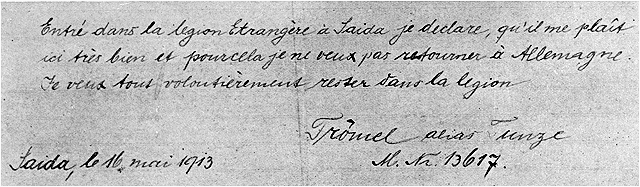 Entré dans la legion Etrangère à Saida je declare, qu'il me plaît
ici très bien et pourcela je ne veux pas retourner à Allemagne.
Je veux tout voloutièrement rester dans la legion
Trömel alias Tunze
Saida, le 16 mai 1913
M. Nr. 13617.